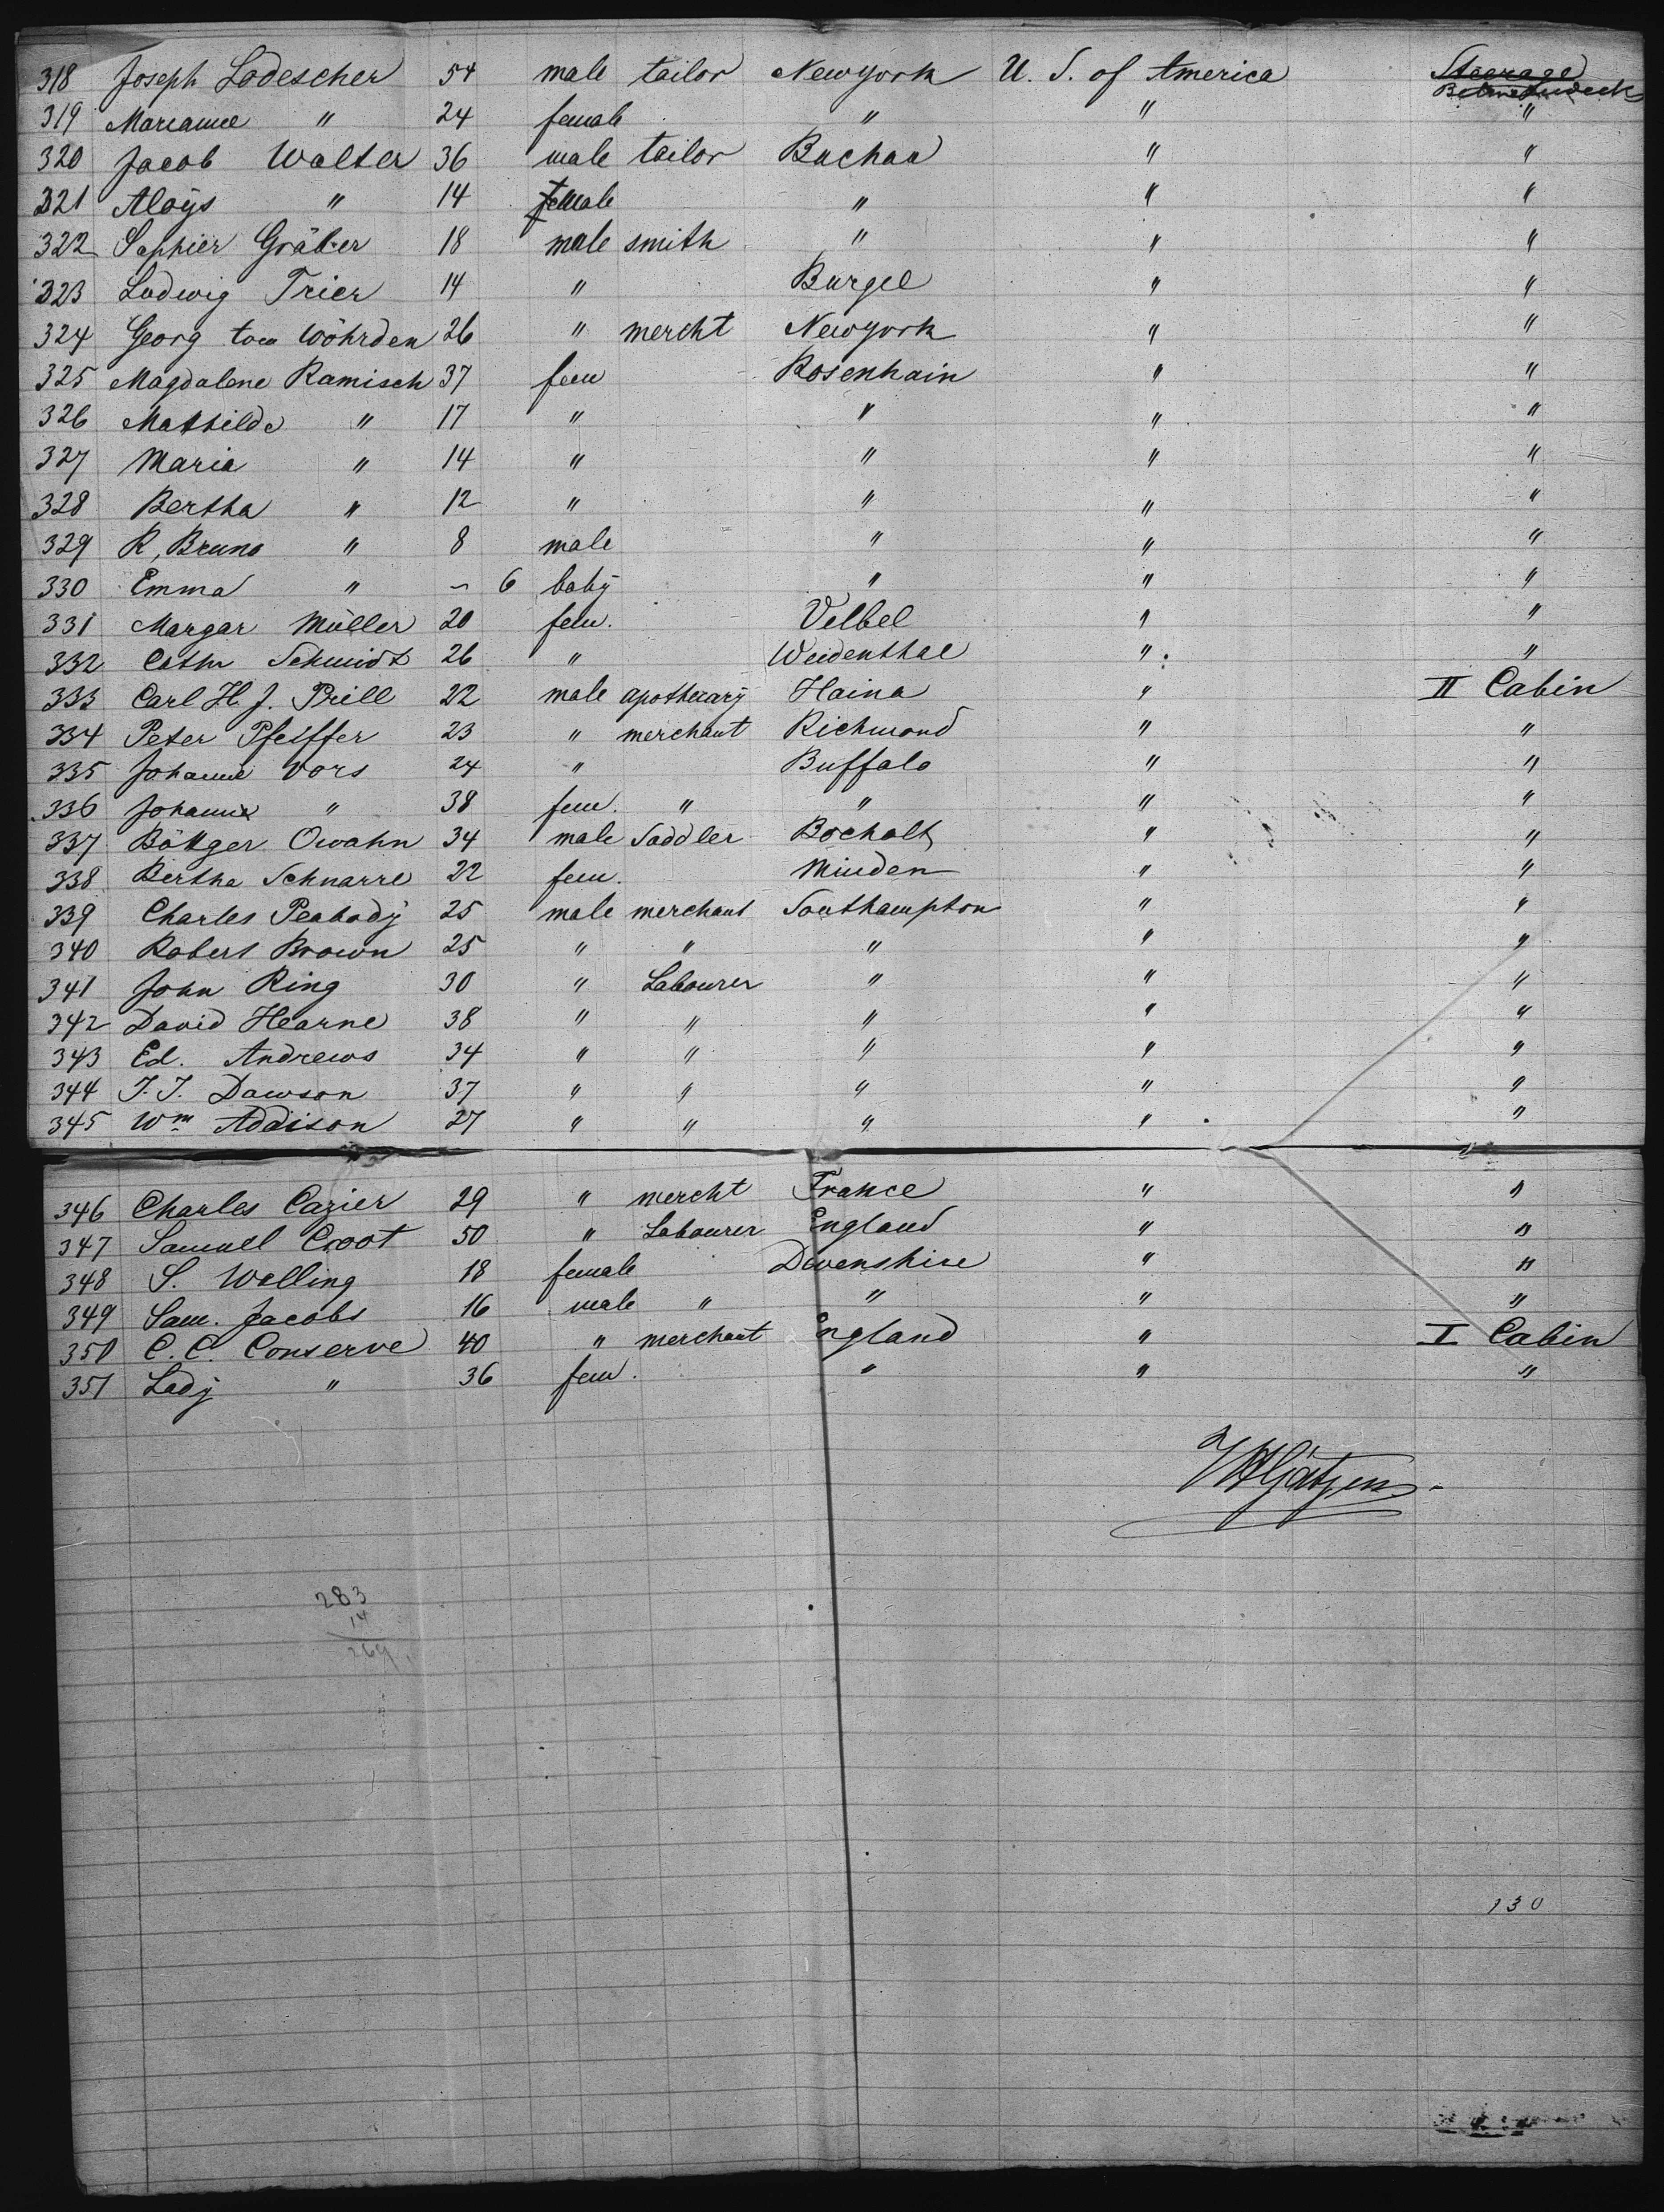 318 Joseph Lodescher 54 male tailor Newyork U. S. of America Steerage
319 Marianne " 24 female " " "
320 Jacob Walter 36 male tailor Buchau " "
321 Aloys " 14 female " " "
322 Saphier Gräber 18 male smith " " "
323 Ludwig Trier 14 " Burgel " "
324 Georg tom Wöhrden 26 " mercht Newyork " "
325 Magdalene Ramisch 37 fem Rosenhain " "
326 Mathilde " 17 " " " "
327 Maria " 14 " " " "
328 Bertha " 12 " " " "
329 R, Bruno " 8 male " " "
330 Emma " – 6 baby " " "
331 Margar Müller 20 fem. Velbel " "
332 Cathr Schmidt 26 " Weidenthal " "
333 Carl H. J. Prill 22 male apothecary Haina " II Cabin
334 Peter Pfeiffer 23 " merchant Richmond " "
335 Johanne Vors 24 " Buffalo " "
336 Johanne " 38 fem. " " " "
337 Böttger Owahn 34 male Saddler Bocholt " "
338 Bertha Schnarre 22 fem. Minden " "
339 Charles Peabody 25 male merchant Southampton " "
340 Robert Brown 25 " " " " "
341 John Ring 30 " Labourer " " "
342 David Hearne 38 " " " " "
343 Ed. Andrews 34 " " " " "
344 J. J. Dawson 37 " " " " "
345 Wm Addison 27 " " " " "
346 Charles Cazier 29 " mercht France " "
347 Samuel Croot 50 " Labourer England " "
348 S. Walling 18 female Devenshire " "
349 Sam. Jacobs 16 male " " " "
350 C. C. Conserve 40 " merchant England " I Cabin
351 Lady " 36 fem. " " "
283
14
269
130